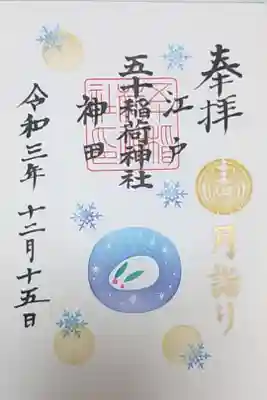 奉拝
月詣り
江戸
五十稲荷神社
神田
令和三年 十二月十五日